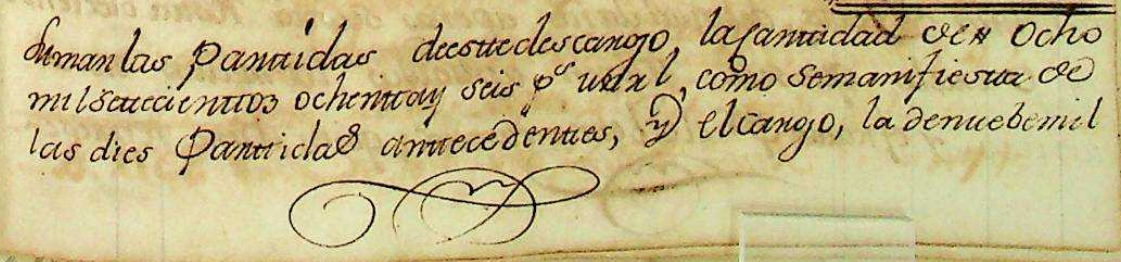 Suman las Partidas de este descargo, la Cantidad de Ocho
mil setecientos ochenta y seis p.s un rl, como se manifiesta de
las dies Partidas antecedentes, y el cargo, la de nuebe mil